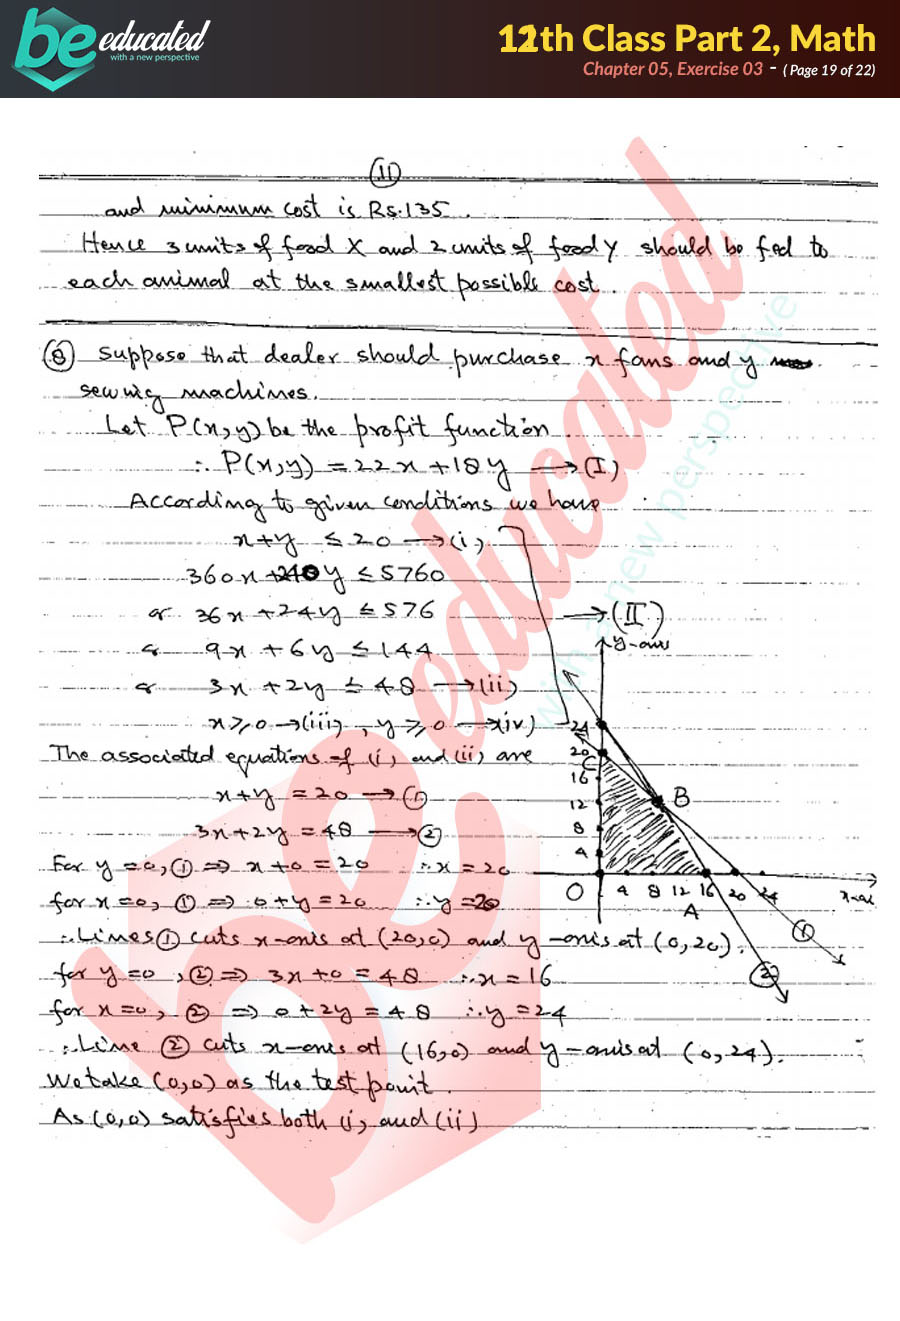 be educated
with a new perspective
12th Class Part 2, Math
Chapter 05, Exercise 03 - ( Page 19 of 22)
11
and minimum cost is Rs.135.
Hence 3 units of food X and 2 units of food Y should be fed to
each animal at the smallest possible cost.
⑧ Suppose that dealer should purchase x fans and y
sewing machines.
Let P(x,y) be the profit function.
∴ P(x,y) = 22x + 18y → (I)
According to given conditions we have
x+y ≤ 20 → (i)
360x + 240y ≤ 5760
or 36x + 24y ≤ 576
→ (II)
or 9x + 6y ≤ 144
or 3x + 2y ≤ 48 → (ii)
x ≥ 0 → (iii) , y ≥ 0 → (iv)
The associated equations of (i) and (ii) are
x+y = 20 → ①
3x+2y = 48 → ②
For y=0, ① ⇒ x+0 = 20 ∴ x = 20
for x=0, ① ⇒ 0+y = 20 ∴ y = 20
∴ Lines ① cuts x-axis at (20,0) and y-axis at (0,20).
for y=0 , ② ⇒ 3x+0 = 48 ∴ x = 16
for x=0, ② ⇒ 0+2y = 48 ∴ y = 24
∴ Line ② cuts x-axis at (16,0) and y-axis at (0,24).
We take (0,0) as the test point.
As (0,0) satisfies both (i) and (ii)
y-axis
24
20
C
16
12
B
8
4
O 4 8 12 16 20 24
A
x-ax
①
②
be educated
with a new perspective